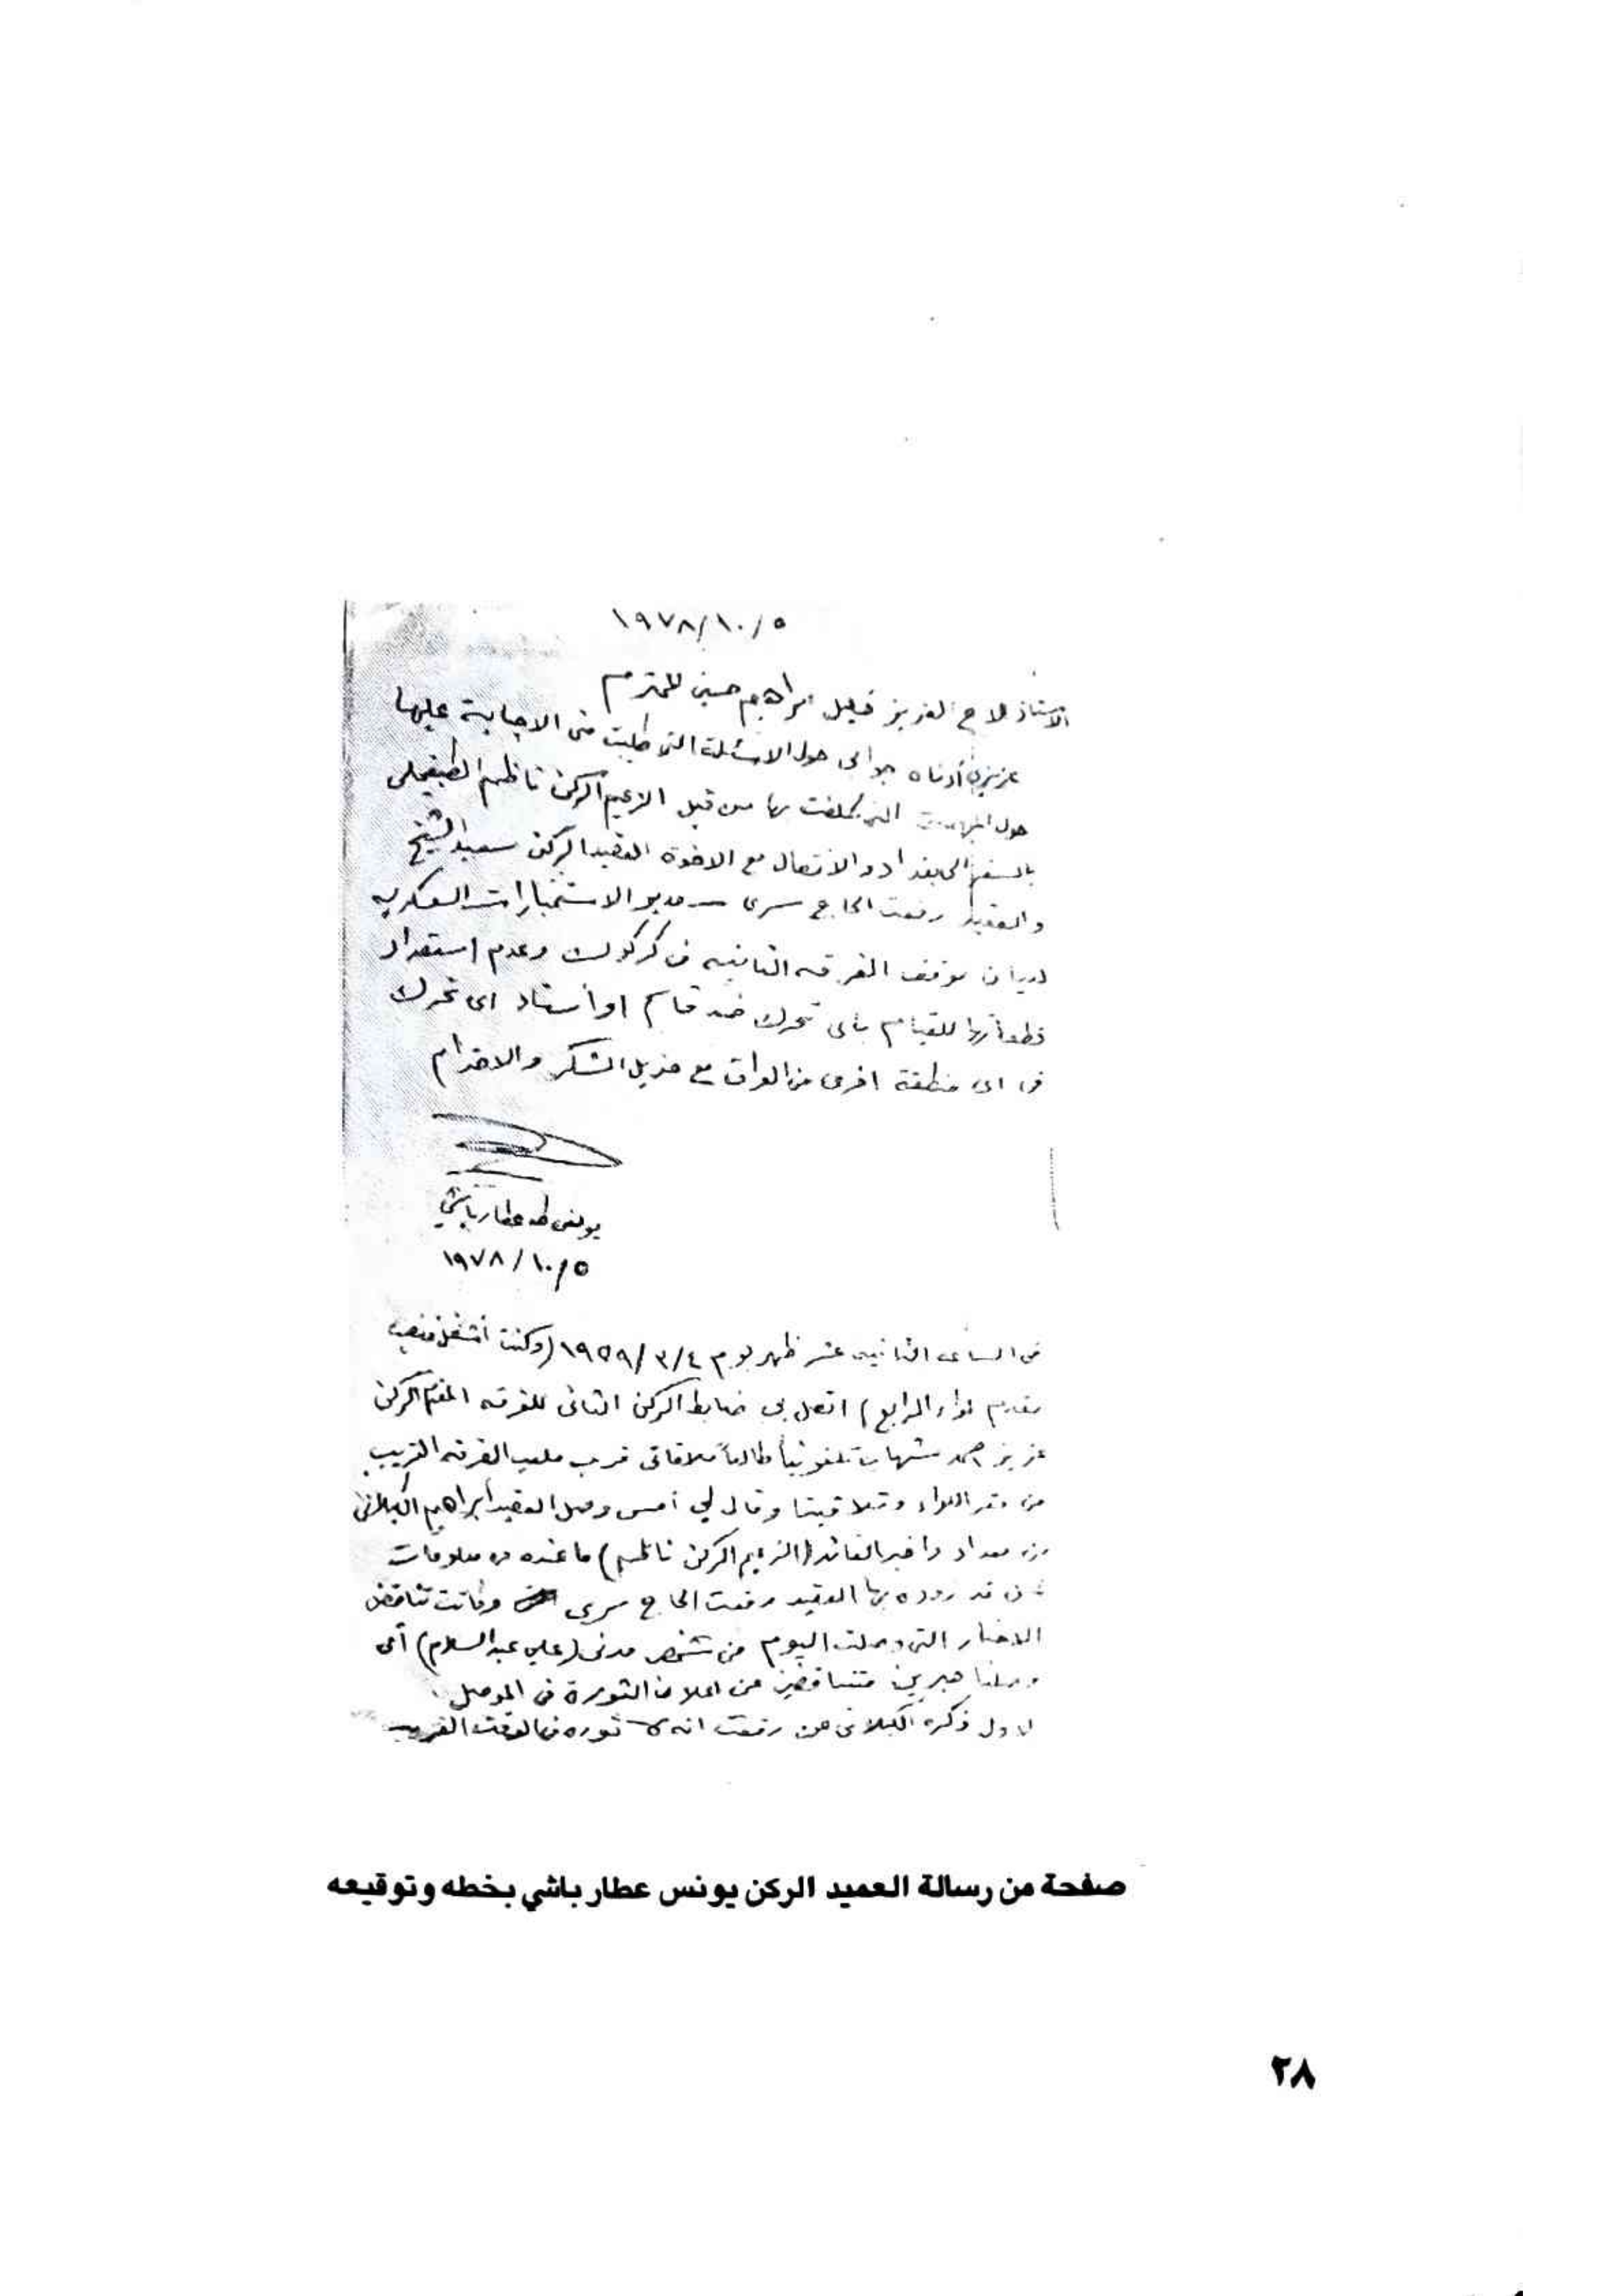 ١٩٧٨/١٠/٥
الاستاذ فلاح العزيز خليل ابراهيم حسين المحترم
عزيزي أدناه جوابي حول الاسئلة التي طلبت مني الاجابة عليها
حول التي كلفت بها من قبل الزعيم الركن ناظم الطبقجلي
بالسفر الى بغداد والاتصال مع الاخوة العقيد الركن سعيد الشيخ
والعقيد رفعت الحاج سري - مدير الاستخبارات العسكريه
لبيان موقف الفرقه الثانيه في كركوك وعدم استعداد
قطعاتها للقيام باى تحرك ضد قاسم او اسناد اى تحرك
فى اى منطقة اخرى من العراق مع جزيل الشكر والاحترام
يونس طه عطار باشي
١٩٧٨/١٠/٥
فى الساعه الثانيه عشر ظهر يوم ١٩٥٩/٣/٤ (وكنت أشغل منصب
مقدم لواء الرابع) اتصل بى ضابط الركن الثانى للفرقه المقدم الركن
عزيز احمد شهاب تلفونياً طالباً ملاقاتى قرب ملعب الفرقه القريب
من مقر اللواء وتلاقينا وقال لي أمس وصل العقيد ابراهيم الكيلانى
من بغداد واخبر القائد (الزعيم الركن ناظم) ما عنده من معلومات
قد زوده بها العقيد رفعت الحاج سرى وكانت تناقض
الاخبار التى وصلت اليوم من شخص مدنى (علي عبدالسلام) أى
وصلنا خبرين متناقضين عن اعلان الثورة فى الموصل
الاول ذكره الكيلانى عن رفعت انه لا ثوره فى الوقت القريب
صفحة من رسالة العميد الركن يونس عطار باشي بخطه وتوقيعه
٢٨